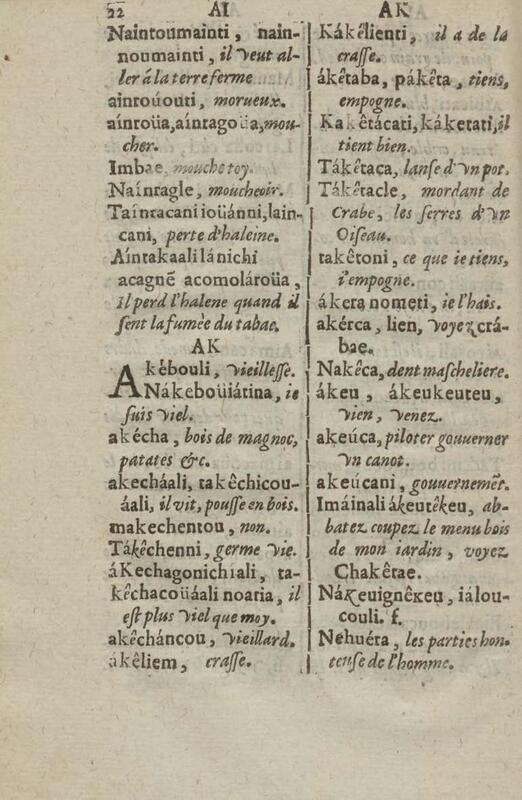 22 AI AK
Naintoümainti, nain-
noumainti, il veut al-
ler á la terre ferme
aintoúouti, morueux.
aíntoüa, aíntagoüa, mou-
cher.
Imbae, mouche toy.
Naíntagle, moucheoir.
Taíntacani ioüánni, lain-
cani, perte d'haleine.
Aíntakaali lánichi
acagnẽ acomolároüa,
il perd l'halene quand il
sent la fumèe du tabac.
AK
Akébouli, vieillesse.
Nákeboüiátina, ie
suis viel.
akécha, bois de magnoc,
patates &c.
akecháali, takêchicou-
áali, il vit, pousse en bois.
makechentou, non.
Tákêchenni, germe vie.
áKechagonichiali, ta-
kêchacoüáali noaria, il
est plus viel que moy.
akêcháncou, vieillard.
ákêliem, crasse.
Kákêlienti, il a de la
crasse.
ákêtaba, pákêta, tiens,
empogne.
Kakêtácati, káketati, il
tient bien.
Tákêtaca, lanse d'vn pot.
Tákêtacle, mordant de
Crabe, les serres d'vn
Oiseau.
takêtoni, ce que ie tiens,
i'empogne.
ákera nometi, ie l'hais.
akérca, lien, voyez crá-
bae.
Nakêca, dent mascheliere.
ákeu, ákeukeuteu,
vien, venez.
akeúca, piloter gouuerner
vn canot.
akeúcani, gouuernemẽt.
Imáinali ákeutêkeu, ab-
batez coupez le menu bois
de mon iardin, voyez
Chakêtae.
Nákeuignêkeu, iálou-
couli. f.
Nehuéra, les parties hon-
teuse de l'homme.